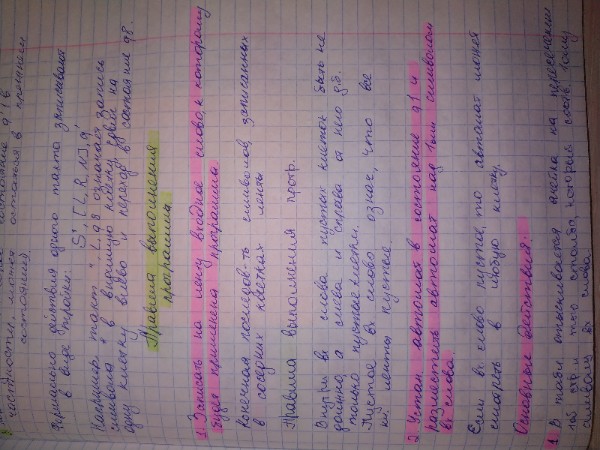 частности, может остаться в прежнем
состоянии.
Формально действия одного такта записывают
в виде тройки:
S', [L, R, N], q'
Например, такт *, L, q8 означает запись
символа * в видимую клетку, сдвиг на
одну клетку влево и переход в состояние q8.
Правила выполнения
программы.
1. Записать на ленту входное слово, к которому
будет применена программа.
Конечная последов-ть символов, записанных
в соседних клетках ленты
Правила выполнения прогр.
Внутри вх слова пустых клеток быть не
должно, а слева и справа от него д.б.
только пустые клетки.
Пустое вх слово означ, что все
кл. ленты пустые.
2. Устан. автомат в состояние q1 и
разместить автомат над 1ым символом
вх слова.
Если вх. слово пустое, то автомат может
смотреть в любую клетку.
Основные действия:
1. В табл отыскивается ячейка на пересечении
1ой стр. и того столбца, который соотв. 1ому
символу вх слова.